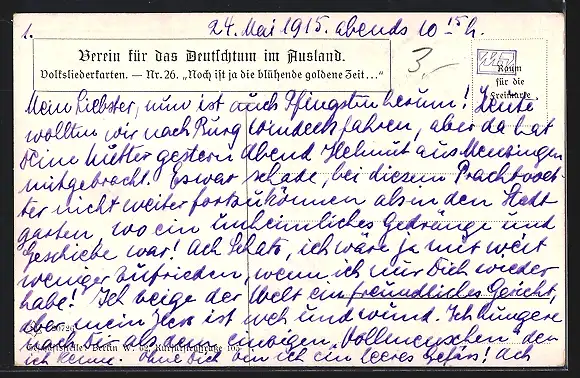 1.
24. Mai 1915. abends 10 15 h.
Verein für das Deutschtum im Ausland.
Volksliederkarten. — Nr. 26. „Noch ist ja die blühende goldene Zeit..."
3,-
Raum
für die
Freimarke
Mein Liebster, nun ist auch Pfingsten herum! Heute
wollten wir nach Burg Windeck fahren, aber da hat
seine Mutter gestern Abend Helmut aus Menzingen
mitgebracht. Es war schade, bei diesem Prachtwet-
ter nicht weiter fortzukönnen als in den Stadt
garten, wo ein unheimliches Gedränge und
Geschiebe war! Ach Schatz, ich wäre ja mit weit
weniger zufrieden, wenn ich nur Dich wieder
habe! Ich zeige der Welt ein freundliches Gesicht,
aber mein Herz ist weh und wund. Ich hungere
nach Dir als dem einzigen „Vollmenschen" den
Geschäftsstelle: Berlin W. 62, Kurfürstenstraße 105
ich kenne. Ohne Dich bin ich ein leeres Gefäss! Ach